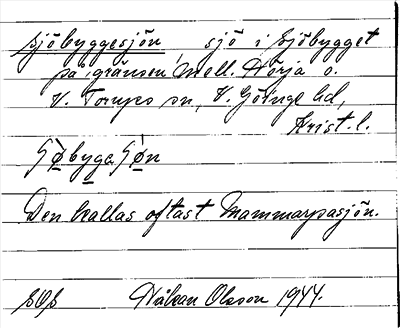 Sjöbyggesjön, sjö i Sjöbygget
på gränsen mell. Nörja o.
V. Torups sn, V. Göinge hd,
Krist. l.
Den kallas oftast Mammarpasjön.
SOs Håkan Olsson 1944.